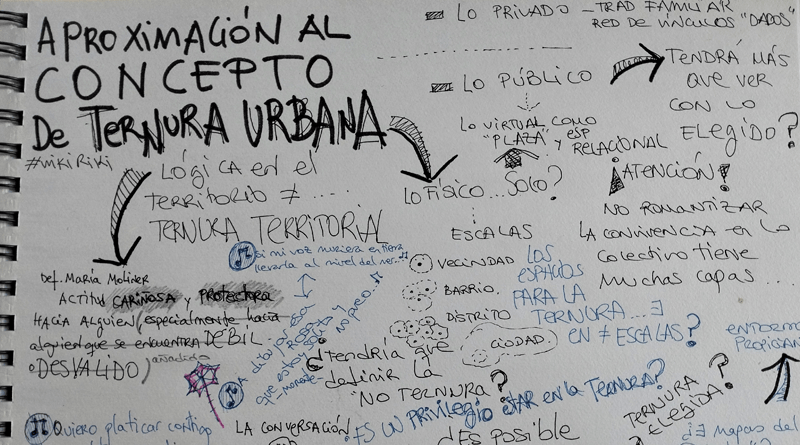 APROXIMACIÓN AL
CONCEPTO
De TERNURA URBANA
#wikiRiki
LÓGICA en el
TERRITORIO ≠ .....
TERNURA TERRITORIAL
Def. María Moliner
ACTITUD CARIÑOSA y PROTECTORA
HACIA ALGUIEN (especialmente hacia
alguien que se encuentra DÉBIL
o DESVALIDO)
añadido
Quiero platicar contigo
si mi voz muriera en tierra
llevarla al nivel del mar
LO PRIVADO – TRAD FAMILIAR
RED DE VÍNCULOS "DADOS"
LO PÚBLICO
TENDRÁ MÁS
QUE VER
CON LO
ELEGIDO?
LO VIRTUAL COMO
"PLAZA" y ESP RELACIONAL
LO FÍSICO... SOLO?
¡ATENCIÓN!
NO ROMANTIZAR
LA CONVIVENCIA en lo
COLECTIVO TIENE
MUCHAS CAPAS...
ESCALAS
VECINDAD
BARRIO
DISTRITO
CIUDAD
LOS
ESPACIOS
PARA LA
TERNURA...∃
EN ≠ ESCALAS?
ENTORNO
¿TENDRÍA QUE
definir la
"NO TERNURA"?
ES UN PRIVILEGIO ESTAR EN LA TERNURA?
TERNURA
ELEGIDA?
LA CONVERSACIÓN
¿ES POSIBLE
¿∃ MAPAS del